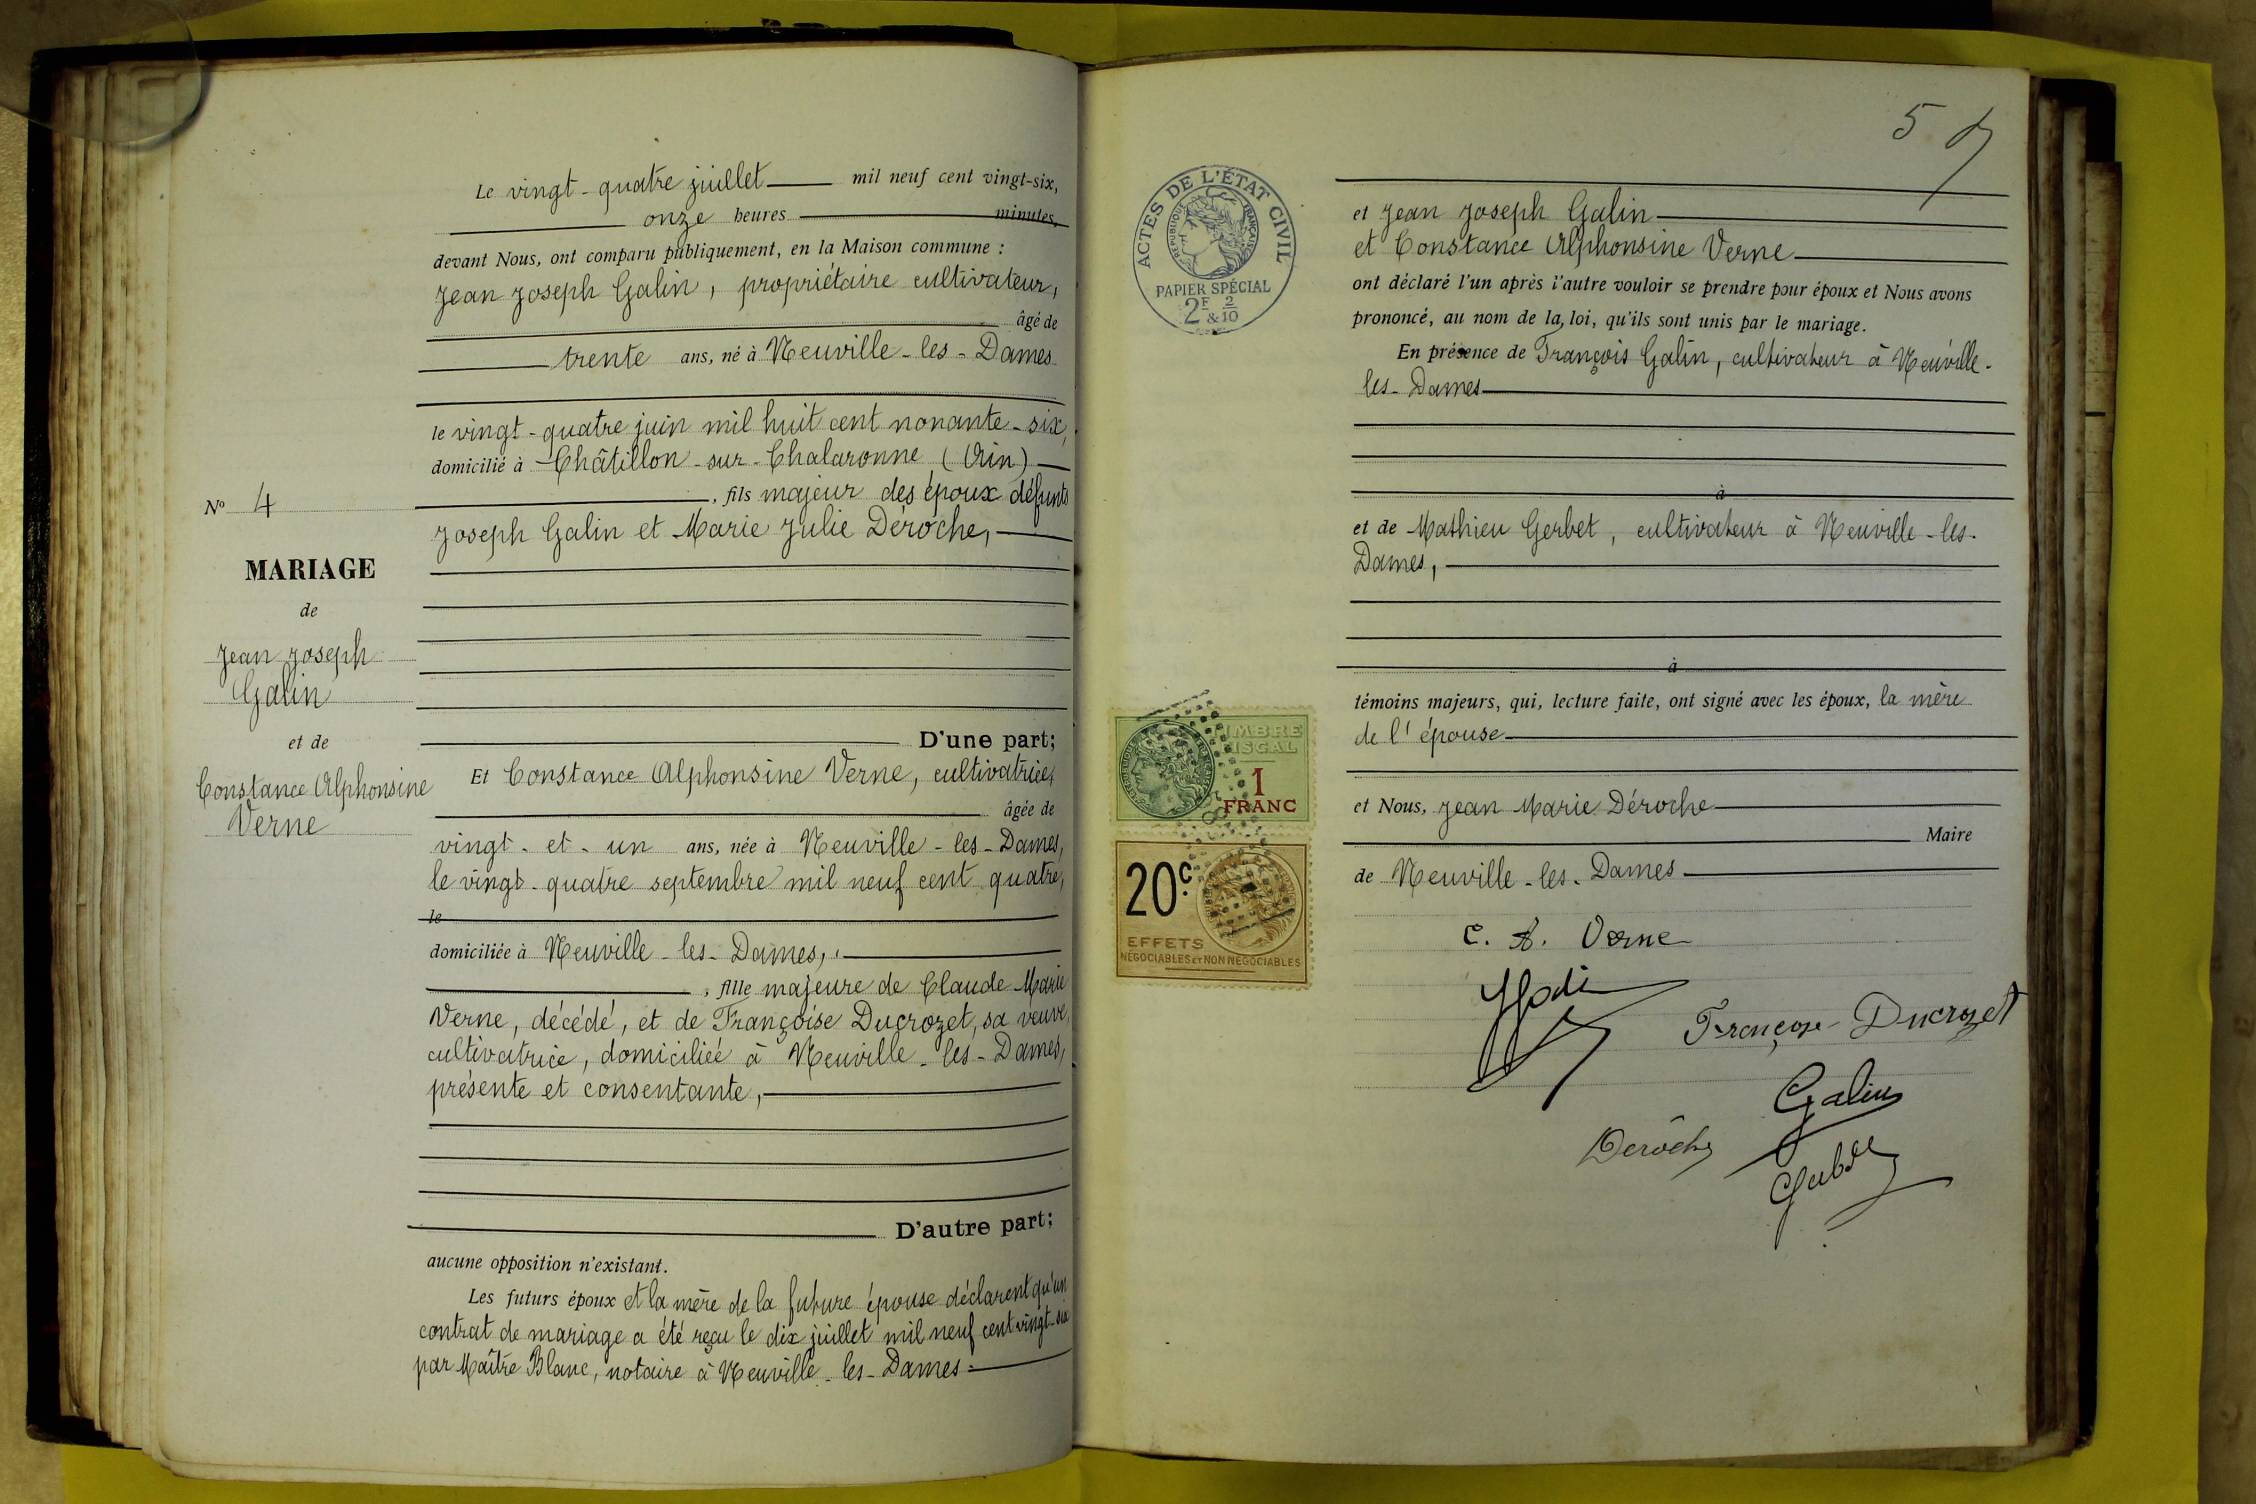 Le vingt-quatre juillet mil neuf cent vingt-six,
onze heures minutes,
devant Nous, ont comparu publiquement, en la Maison commune :
Jean Joseph Galin, propriétaire cultivateur,
âgé de
trente ans, né à Neuville-les-Dames
le vingt-quatre juin mil huit cent nonante-six,
domicilié à Châtillon-sur-Chalaronne (Ain)
, fils majeur des époux défunts
Joseph Galin et Marie Julie Déroche,
D'une part;
Et Constance Alphonsine Verne, cultivatrice,
âgée de
vingt-et-un ans, née à Neuville-les-Dames,
le vingt-quatre septembre mil neuf cent quatre,
le
domiciliée à Neuville-les-Dames,
, fille majeure de Claude Marie
Verne, décédé, et de Françoise Ducrozet, sa veuve,
cultivatrice, domiciliée à Neuville-les-Dames,
présente et consentante,
D'autre part;
aucune opposition n'existant.
Les futurs époux et la mère de la future épouse déclarent qu'un
contrat de mariage a été reçu le dix juillet mil neuf cent vingt-six
par Maître Blanc, notaire à Neuville-les-Dames
No 4
MARIAGE
de
Jean Joseph
Galin
et de
Constance Alphonsine
Verne
5
ACTES DE L'ÉTAT CIVIL
RÉPUBLIQUE FRANÇAISE
PAPIER SPÉCIAL
2F & 2/10
et Jean Joseph Galin
et Constance Alphonsine Verne
ont déclaré l'un après l'autre vouloir se prendre pour époux et Nous avons
prononcé, au nom de la loi, qu'ils sont unis par le mariage.
En présence de François Galin, cultivateur à Neuville-
les-Dames
à
et de Mathieu Gerbet, cultivateur à Neuville-les-
Dames,
à
témoins majeurs, qui, lecture faite, ont signé avec les époux, la mère
de l'épouse
et Nous, Jean Marie Déroche
Maire
de Neuville-les-Dames
TIMBRE
FISCAL
1
FRANC
20c.
EFFETS
NÉGOCIABLES ET NON NÉGOCIABLES
C. A. Verne
Ducrozet
Galin
Deroche